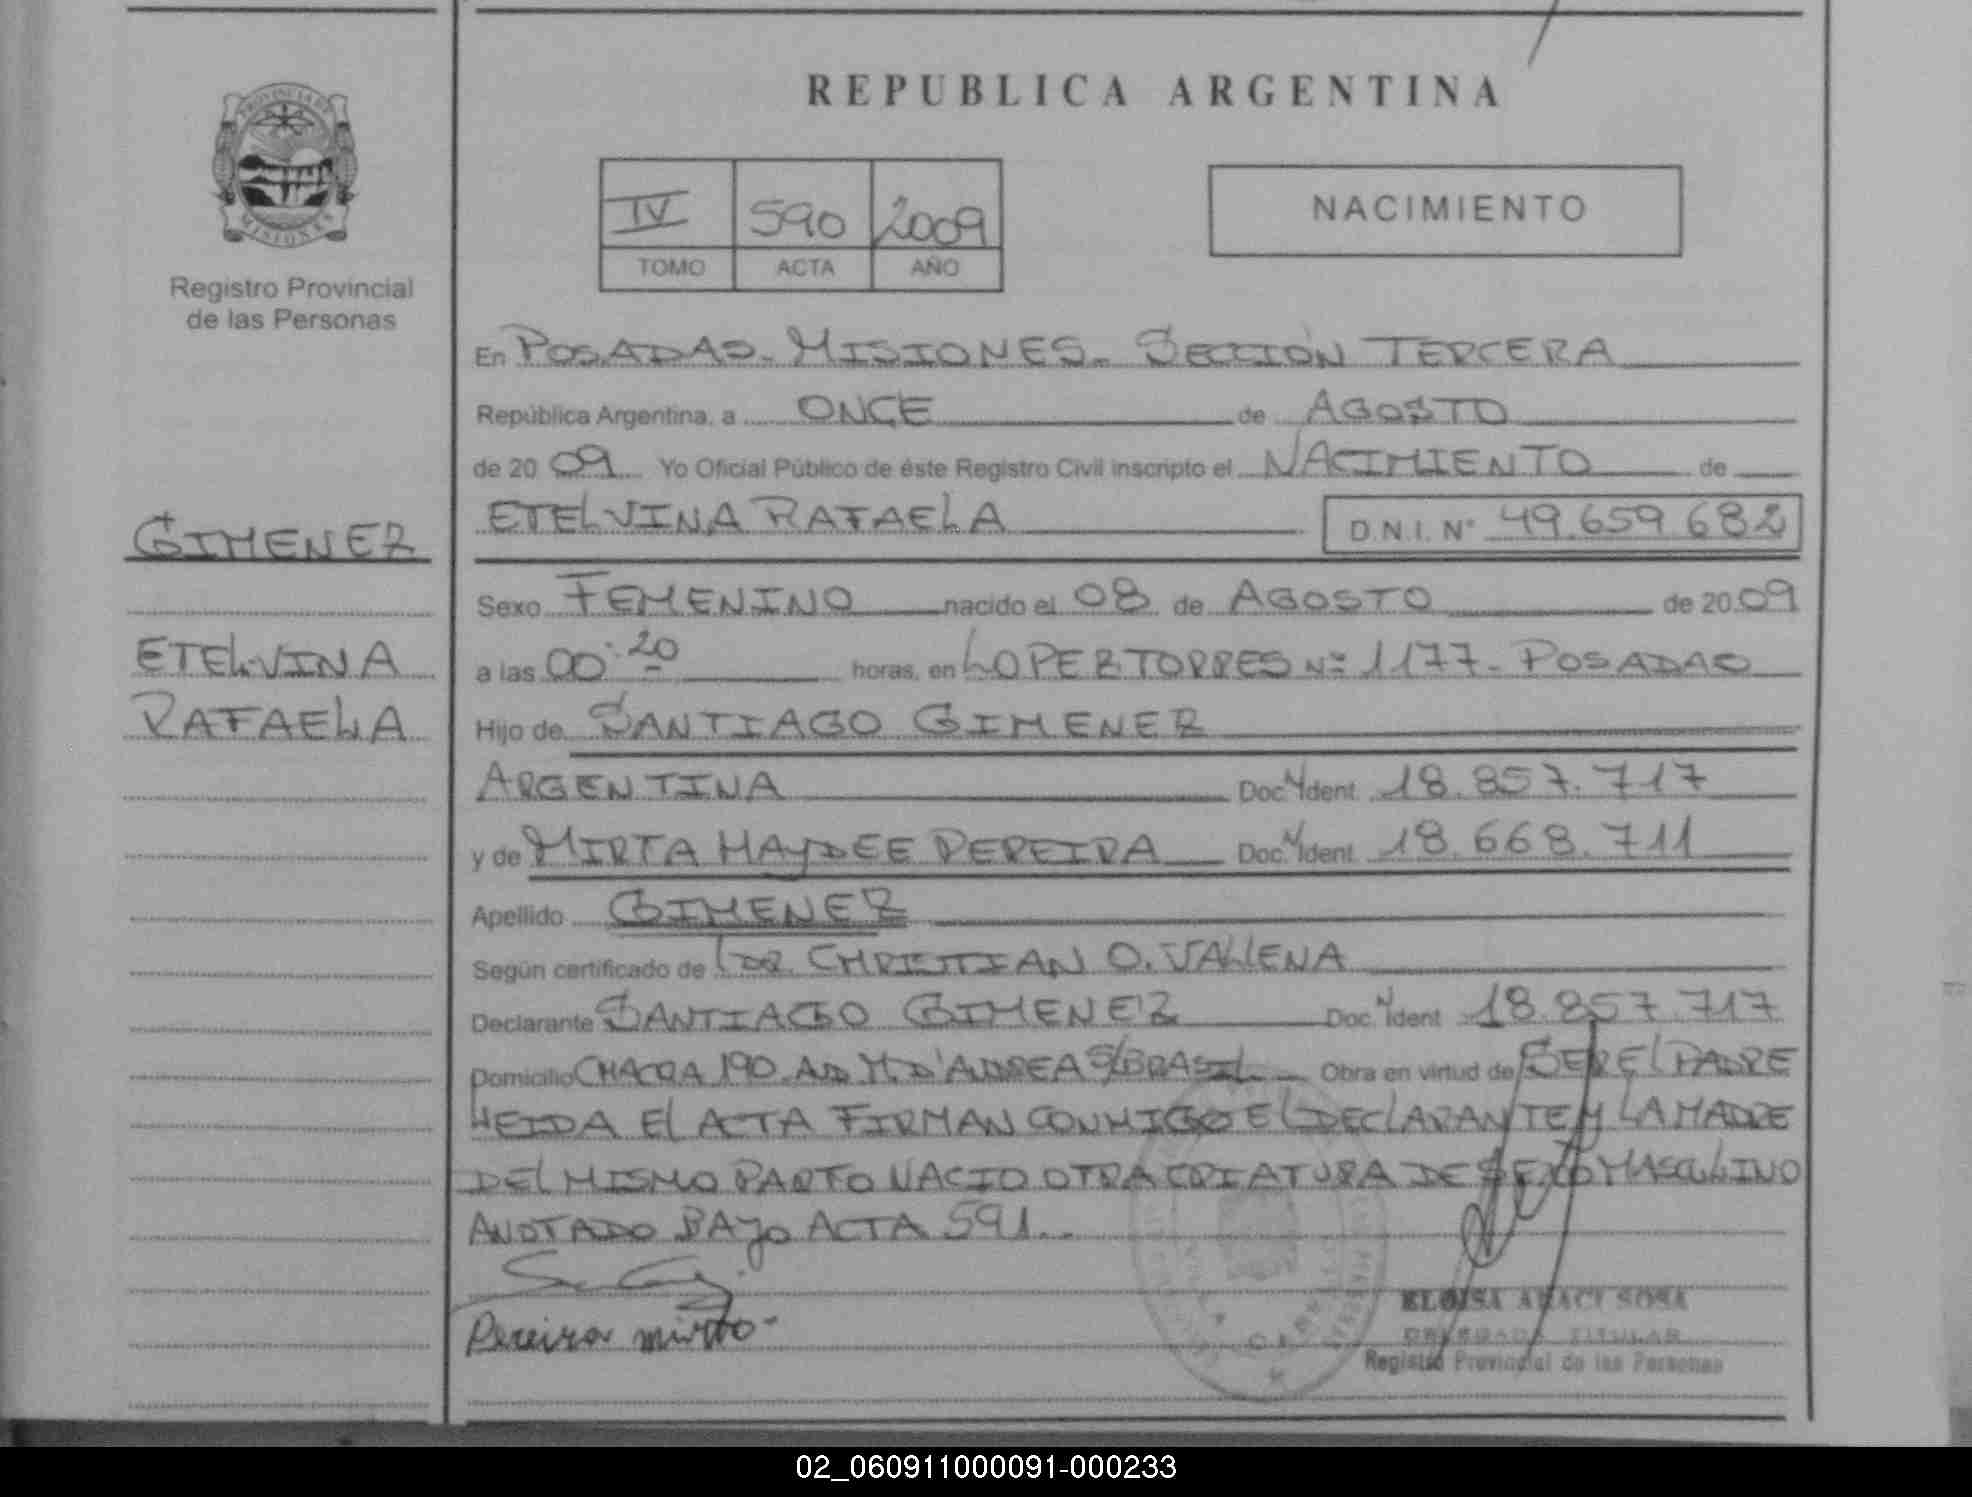 REPUBLICA ARGENTINA
PROVINCIA DE
MISIONES
Registro Provincial
de las Personas
IV 590 2009
TOMO ACTA AÑO
NACIMIENTO
En POSADAS - MISIONES - SECCIÓN TERCERA
República Argentina, a ONCE de AGOSTO
de 20 09 Yo Oficial Público de éste Registro Civil inscripto el NACIMIENTO de
ETELVINA RAFAELA D.N.I. N° 49.659.682
GIMENEZ
Sexo FEMENINO nacido el 08 de AGOSTO de 20 09
ETELVINA
a las 00:20 horas, en LOPEZ TORRES Nº 1177 - POSADAS
RAFAELA
Hijo de SANTIAGO GIMENEZ
ARGENTINA Doc. Ident. 18.857.717
y de MIRTA HAYDEE PEREIRA Doc. Ident. 18.668.711
Apellido GIMENEZ
Según certificado de DR. CHRISTIAN O. VALLENA
Declarante SANTIAGO GIMENEZ Doc. Ident. 18.857.717
Domicilio CHACRA 190. AND M. D'ANDREA S/BRASIL Obra en virtud de SER EL PADRE
LEIDA EL ACTA FIRMAN CONMIGO EL DECLARANTE Y LA MADRE
DEL MISMO PARTO NACIO OTRA CRIATURA DE SEXO MASCULINO
ANOTADO BAJO ACTA 591.
Pereira mirta
ELOISA ARACI SOSA
DELEGADA TITULAR
Registro Provincial de las Personas
02_060911000091-000233